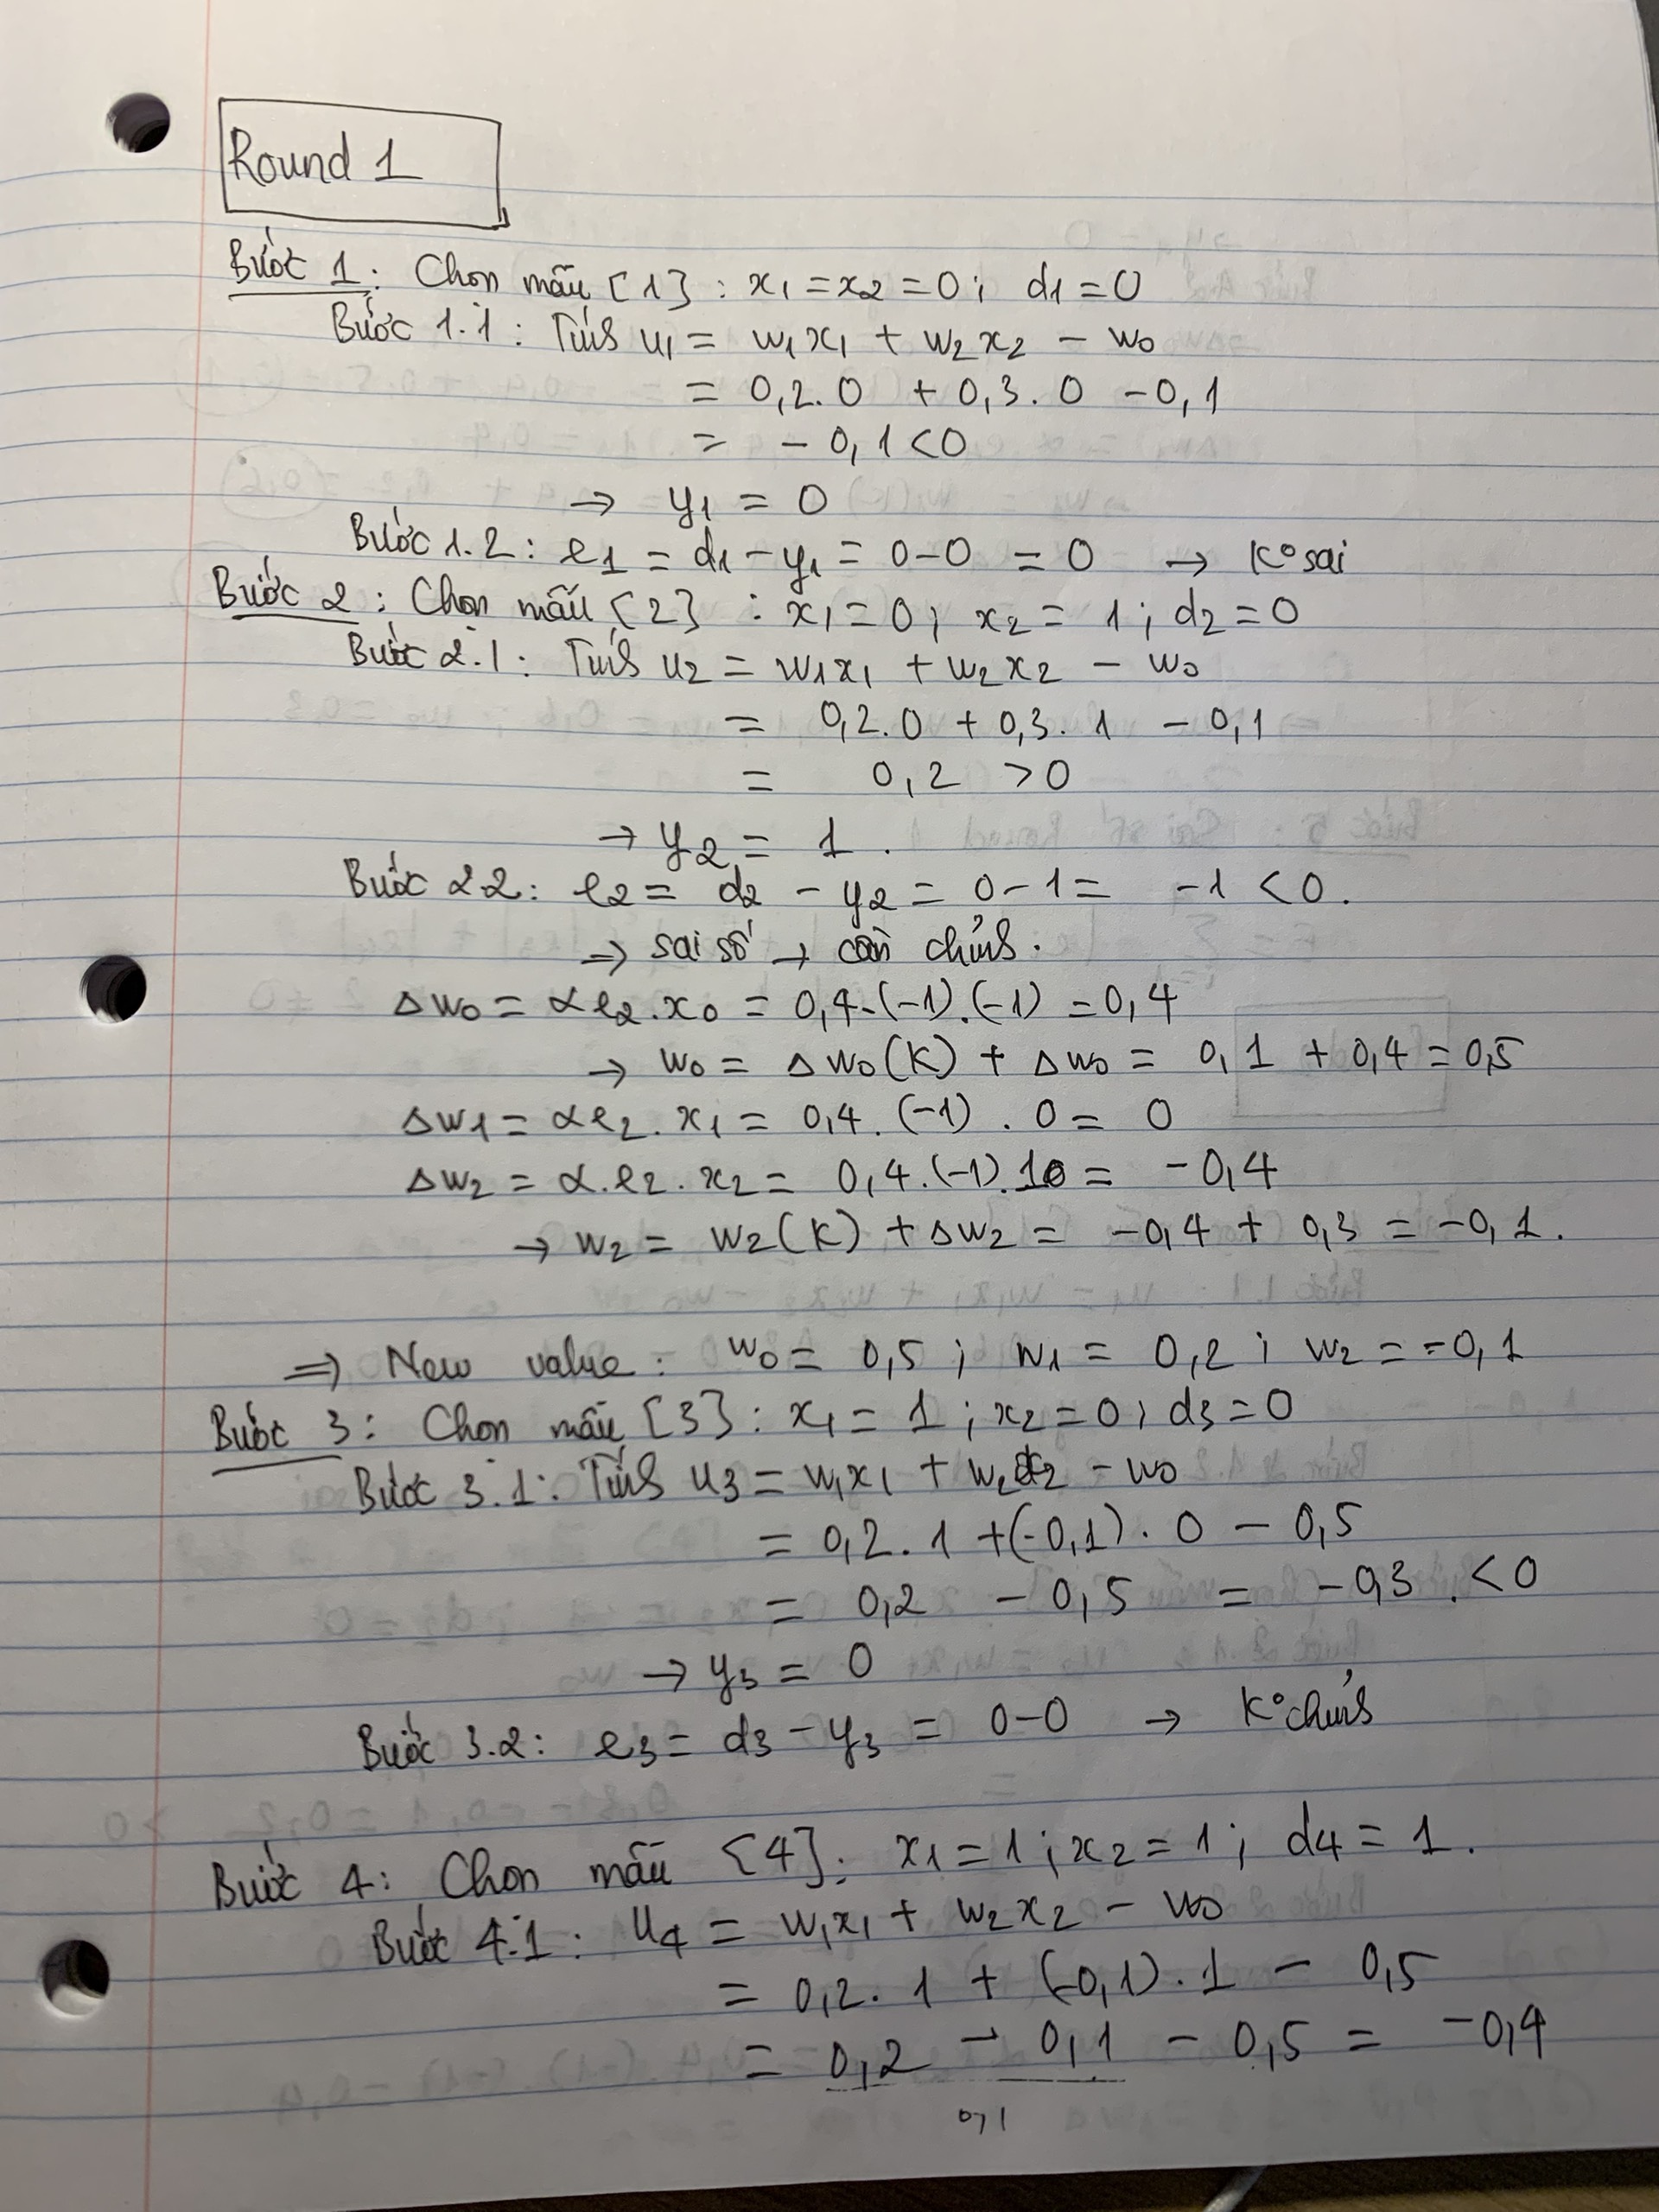 Round 1
Bước 1: Chọn mẫu [1] : x₁ = x₂ = 0 ; d₁ = 0
Bước 1.1 : Tính u₁ = w₁x₁ + w₂x₂ - w₀
= 0,2.0 + 0,3.0 - 0,1
= - 0,1 < 0
→ y₁ = 0
Bước 1.2 : e₁ = d₁ - y₁ = 0-0 = 0 → K° sai
Bước 2 : Chọn mẫu [2] : x₁ = 0 ; x₂ = 1 ; d₂ = 0
Bước 2.1 : Tính u₂ = w₁x₁ + w₂x₂ - w₀
= 0,2.0 + 0,3.1 - 0,1
= 0,2 > 0
→ y₂ = 1.
Bước 2.2 : e₂ = d₂ - y₂ = 0-1 = -1 < 0.
⇒ sai số → cần chỉnh.
Δw₀ = αe₂.x₀ = 0,4.(-1).(-1) = 0,4
→ w₀ = Δw₀(K) + Δw₀ = 0,1 + 0,4 = 0,5
Δw₁ = αe₂.x₁ = 0,4.(-1).0 = 0
Δw₂ = α.e₂.x₂ = 0,4.(-1).1 = -0,4
→ w₂ = w₂(K) + Δw₂ = -0,4 + 0,3 = -0,1.
⇒ New value : w₀ = 0,5 ; w₁ = 0,2 ; w₂ = -0,1
Bước 3 : Chọn mẫu [3] : x₁ = 1 ; x₂ = 0 ; d₃ = 0
Bước 3.1 : Tính u₃ = w₁x₁ + w₂x₂ - w₀
= 0,2.1 + (-0,1).0 - 0,5
= 0,2 - 0,5 = -0,3 < 0
→ y₃ = 0
Bước 3.2 : e₃ = d₃ - y₃ = 0-0 → K° chỉnh
Bước 4 : Chọn mẫu [4] : x₁ = 1 ; x₂ = 1 ; d₄ = 1.
Bước 4.1 : u₄ = w₁x₁ + w₂x₂ - w₀
= 0,2.1 + (-0,1).1 - 0,5
= 0,2 - 0,1 - 0,5 = -0,4
0,1